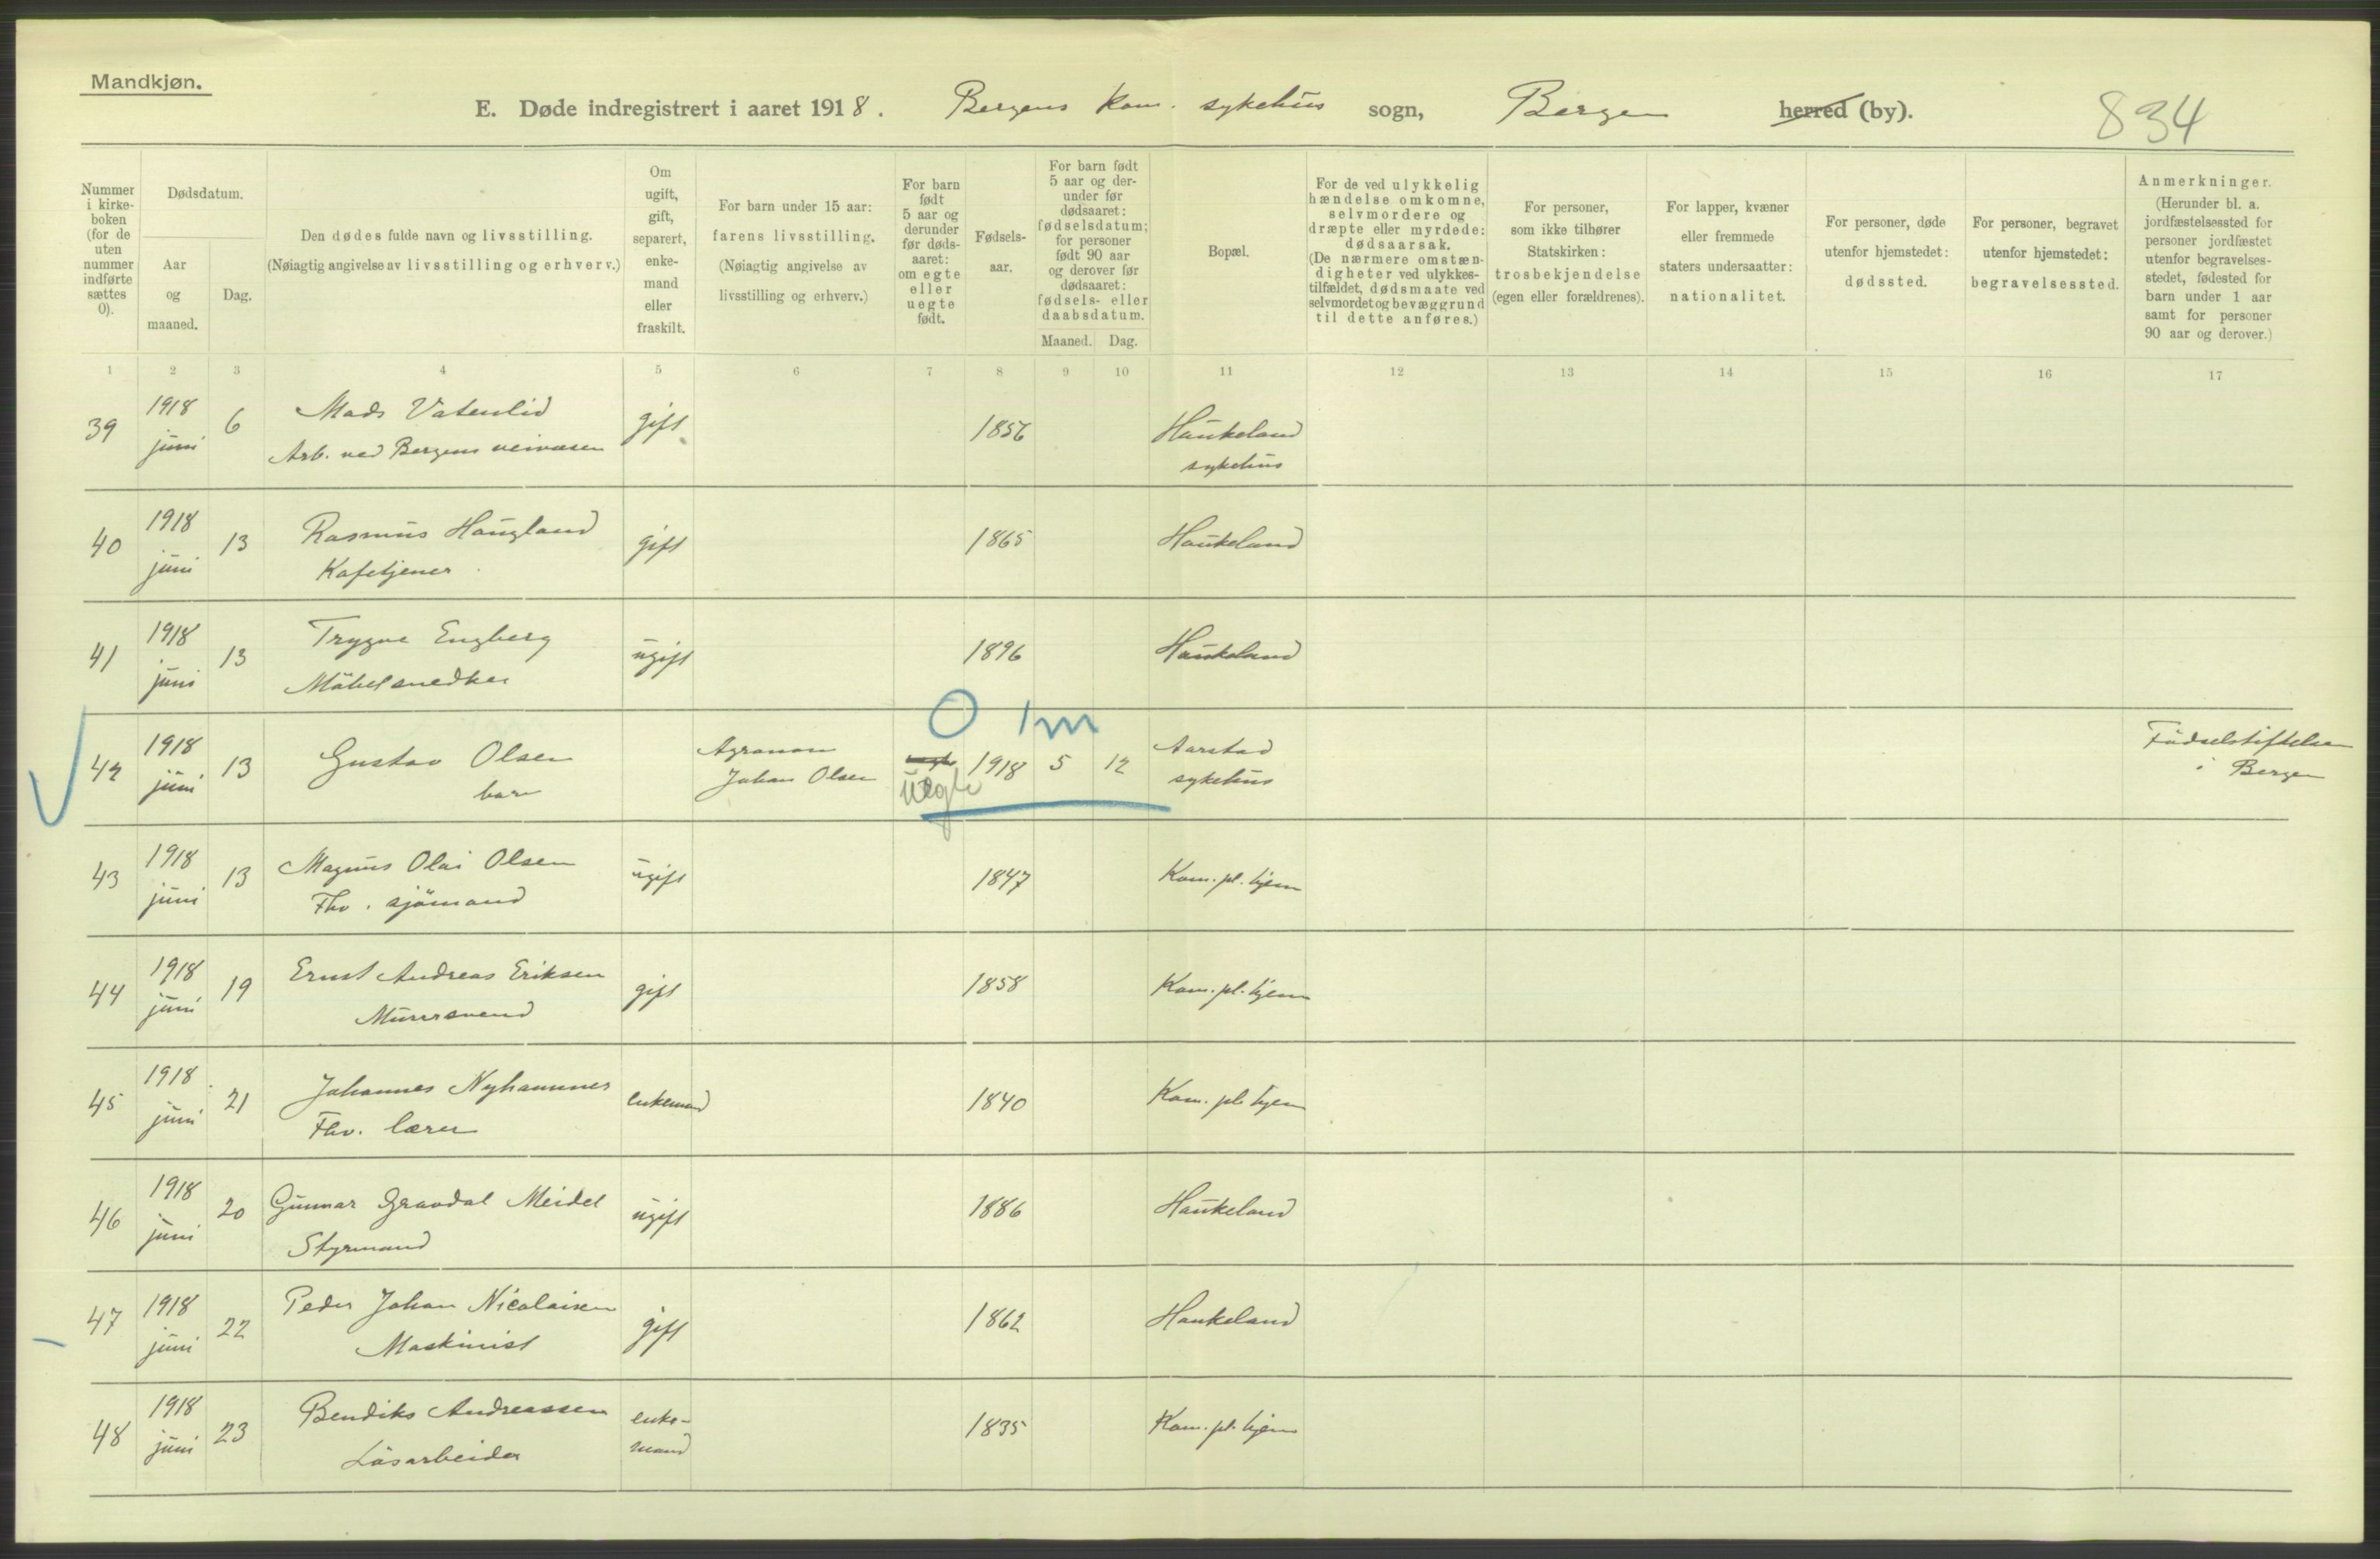 Mandkjøn.
E. Døde indregistrert i aaret 1918. Bergens kom. sykehus sogn, Bergen herred (by). 834
Nummer i kirke-boken (for de uten nummer indførte sættes 0).
Dødsdatum.
Aar og maaned.
Dag.
Den dødes fulde navn og livsstilling.
(Nøiagtig angivelse av livsstilling og erhverv.)
Om ugift, gift, separert, enke-mand eller fraskilt.
For barn under 15 aar:
farens livsstilling.
(Nøiagtig angivelse av
livsstilling og erhverv.)
For barn født 5 aar og derunder før døds-aaret: om egte eller uegte født.
Fødsels-aar.
For barn født 5 aar og der-under før dødsaaret: fødselsdatum; for personer født 90 aar og derover før dødsaaret: fødsels- eller daabsdatum.
Maaned. Dag.
Bopæl.
For de ved ulykkelig hændelse omkomne, selvmordere og dræpte eller myrdede: dødsaarsak. (De nærmere omstæn-digheter ved ulykkes-tilfældet, dødsmaate ved selvmordet og bevæggrund til dette anføres.)
For personer, som ikke tilhører Statskirken: trosbekjendelse (egen eller forældrenes).
For lapper, kvæner eller fremmede staters undersaatter: nationalitet.
For personer, døde utenfor hjemstedet: dødssted.
For personer, begravet utenfor hjemstedet: begravelsessted.
Anmerkninger. (Herunder bl. a. jordfæstelsessted for personer jordfæstet utenfor begravelses-stedet, fødested for barn under 1 aar samt for personer 90 aar og derover.)
1 2 3 4 5 6 7 8 9 10 11 12 13 14 15 16 17
39 1918 juni 6 Mads Vatenlid gift 1856 Haukeland
Arb. ved Bergens veivæsen sykehus
40 1918 juni 13 Rasmus Haugland gift 1865 Haukeland
Kafetjener
41 1918 juni 13 Trygve Engberg ugift 1896 Haukeland
Möbelsnedker
0 1m
42 1918 juni 13 Gustav Olsen Agronom 1918 5 12 Aarstad Födselstiftelsen
barn Johan Olsen uegte sykehus i Bergen
43 1918 juni 13 Magnus Olai Olsen ugift 1847 Kom. pl. hjem
Fhv. sjömand
44 1918 juni 19 Ernst Andreas Eriksen gift 1858 Kom. pl. hjem
Murersvend
45 1918 juni 21 Johannes Nyhammer enkemand 1840 Kom. pl. hjem
Fhv. lærer
46 1918 juni 20 Gunnar Gravdal Meidel ugift 1886 Haukeland
Styrmand
47 1918 juni 22 Peder Johan Nicolaisen gift 1862 Haukeland
Maskinist
48 1918 juni 23 Bendiks Andreassen enke- 1835 Kom. pl. hjem
Lösarbeider mand